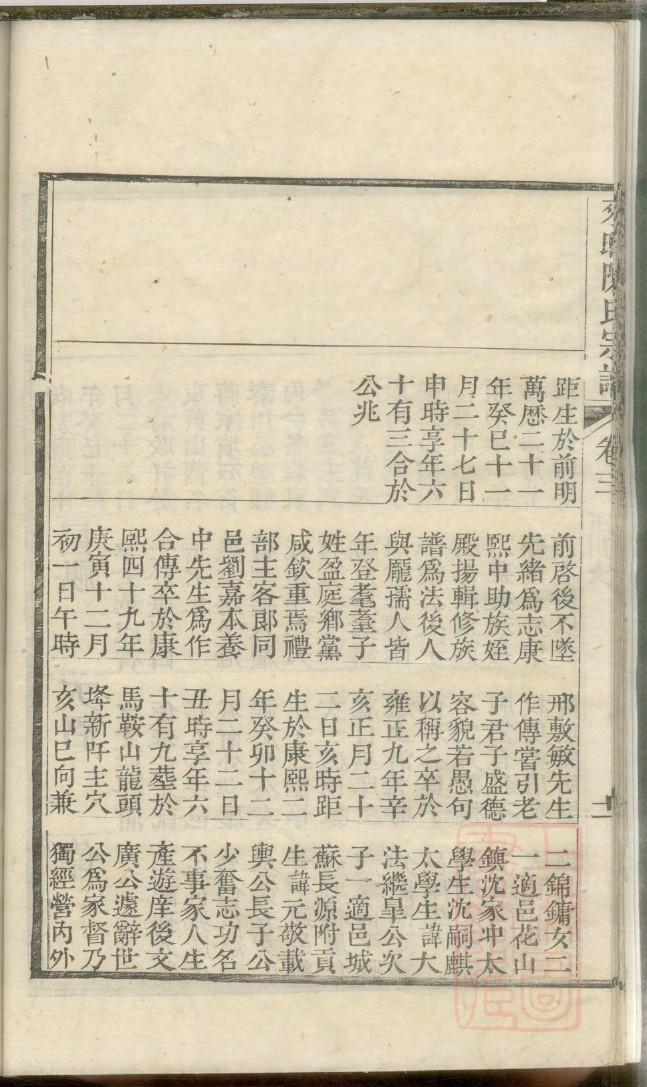 陳氏宗譜
卷三
十一
距生於前明
萬歷二十一
年癸巳十一
月二十七日
申時享年六
十有三合於
公兆
前啓後不墜
先緒爲志康
熙中助族姪
殿揚輯修族
譜爲法後人
與龐孺人皆
年登耄耋子
姓盈庭鄉黨
咸欽重焉禮
部主客郎同
邑劉嘉本養
中先生爲作
合傳卒於康
熙四十九年
庚寅十二月
初一日午時
邢敷敏先生
作傳嘗引老
子君子盛德
容貌若愚句
以稱之卒於
雍正九年辛
亥正月二十
二日亥時距
生於康熙二
年癸卯十二
月二十二日
丑時享年六
十有九塟於
馬鞍山龍頭
埄新阡主穴
亥山巳向兼
二錦鏞女二
一適邑花山
鎮沈家冲太
學生沈嗣麒
太學生諱大
法繼皐公次
子一適邑城
蘇長源附貢
生諱元敬載
輿公長子公
少奮志功名
不事家人生
產遊庠後文
廣公遽辭世
公爲家督乃
獨經營內外